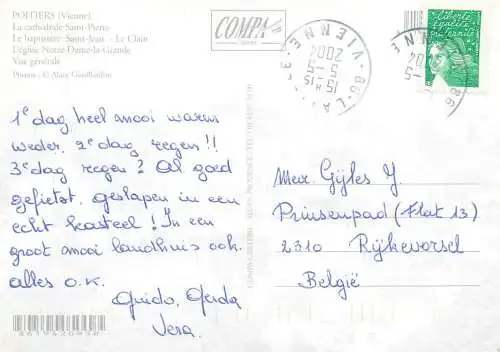 POITIERS (Vienne)
La cathédrale Saint-Pierre
Le baptistère Saint-Jean - Le Clain
L'église Notre-Dame-la-Grande
Vue générale
COMPA
1e dag heel mooi warm
weder, 2e dag regen!!
3e dag regen? Al goed
gefietst, geslapen in een
echt kasteel! In een
groot mooi landhuis ook.
alles o.k.
Guido, Gerda
Vera.
86 LA
VIENNE
15 H 15
5-5
2004
Liberté
égalité
fraternité
Meer Gijles J
Prinsenpad (Flat 13)
2310 Rijkevorsel
België